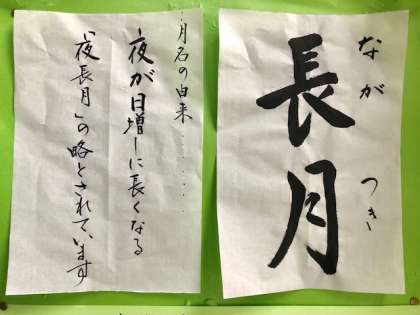 ながつき
長月
月名の由来………
夜が日増しに長くなる
「夜長月」の略とされています